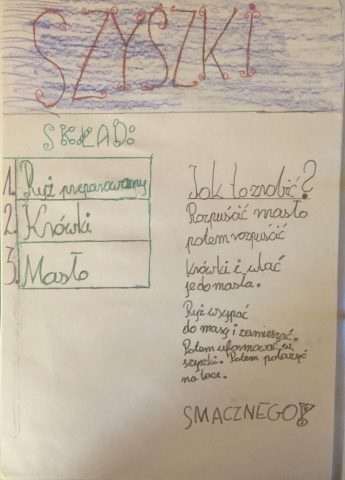 SZYSZKI
SKŁAD:
1. Ryż preparowany
2. Krówki
3. Masło
Jak to zrobić?
Rozpuścić masło
potem rozpuścić
Krówki i wlać
je do masła.
Ryż wsypać
do masy i zamieszać.
Potem uformować
szyszki. Potem położyć
na tace.
SMACZNEGO!